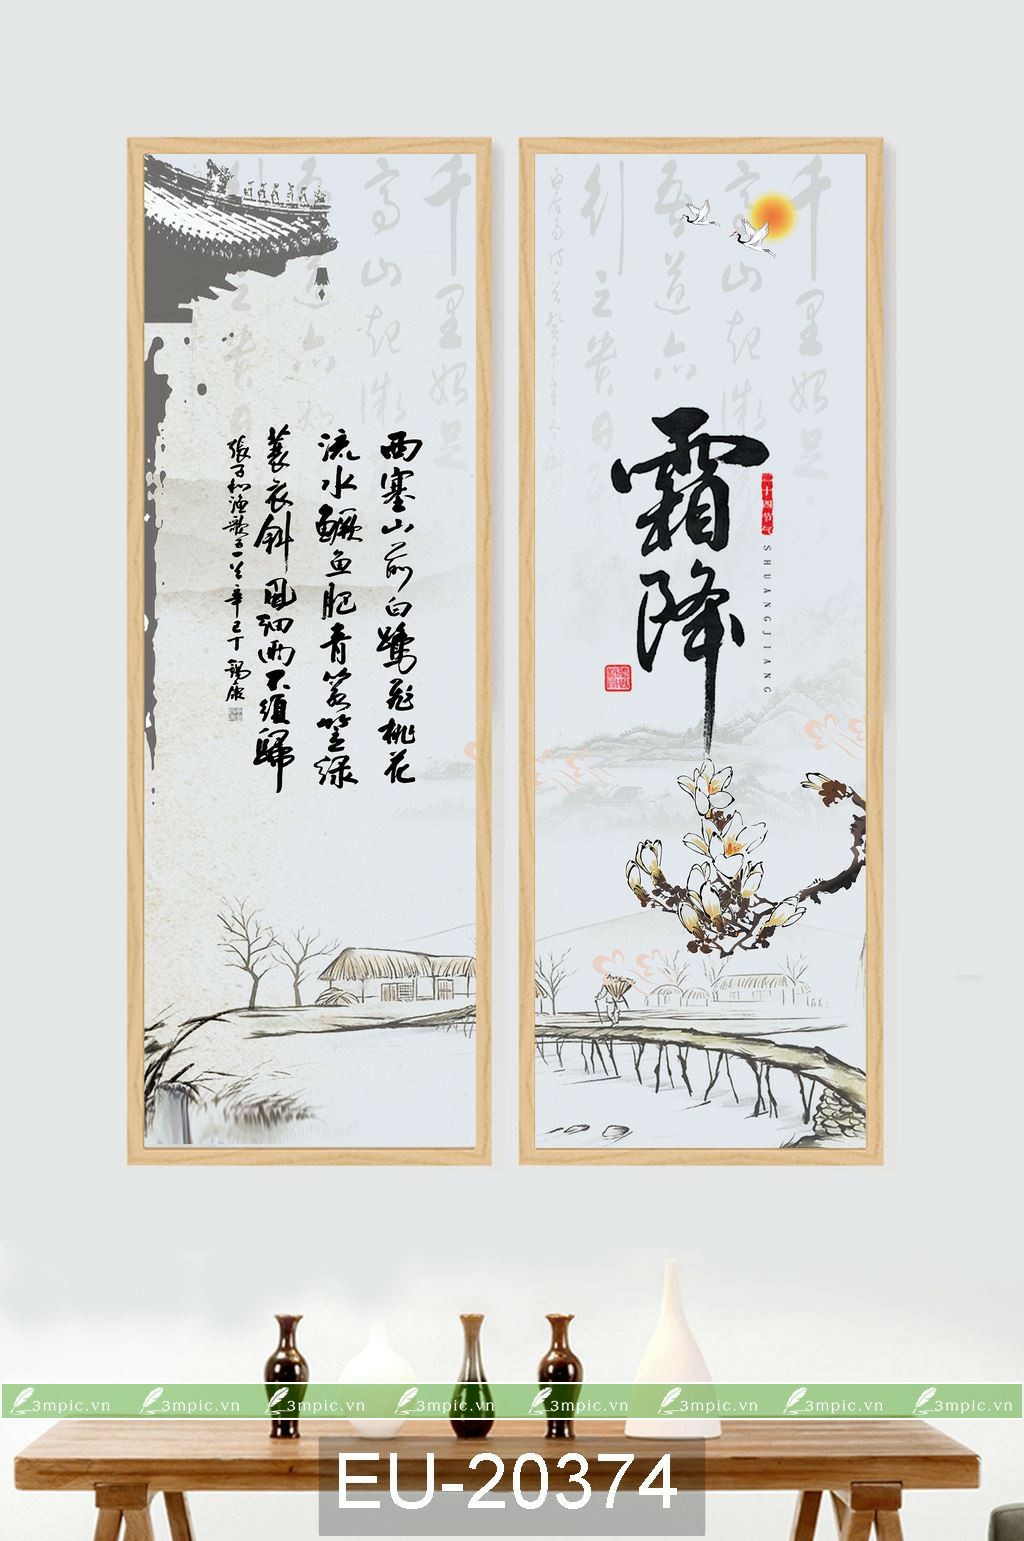 西塞山前白鹭飛桃花
流水鱖鱼肥青箬笠绿
蓑衣斜風细雨不須歸
張子和渔歌子一首辛巳丁錫康
千里始足
高山起微
吾道亦
行之贵日
霜降
二十四节气
SHUANGJIANG
3mpic.vn 3mpic.vn 3mpic.vn 3mpic.vn 3mpic.vn 3mpic.vn 3mpic.vn 3mpic.vn
EU-20374